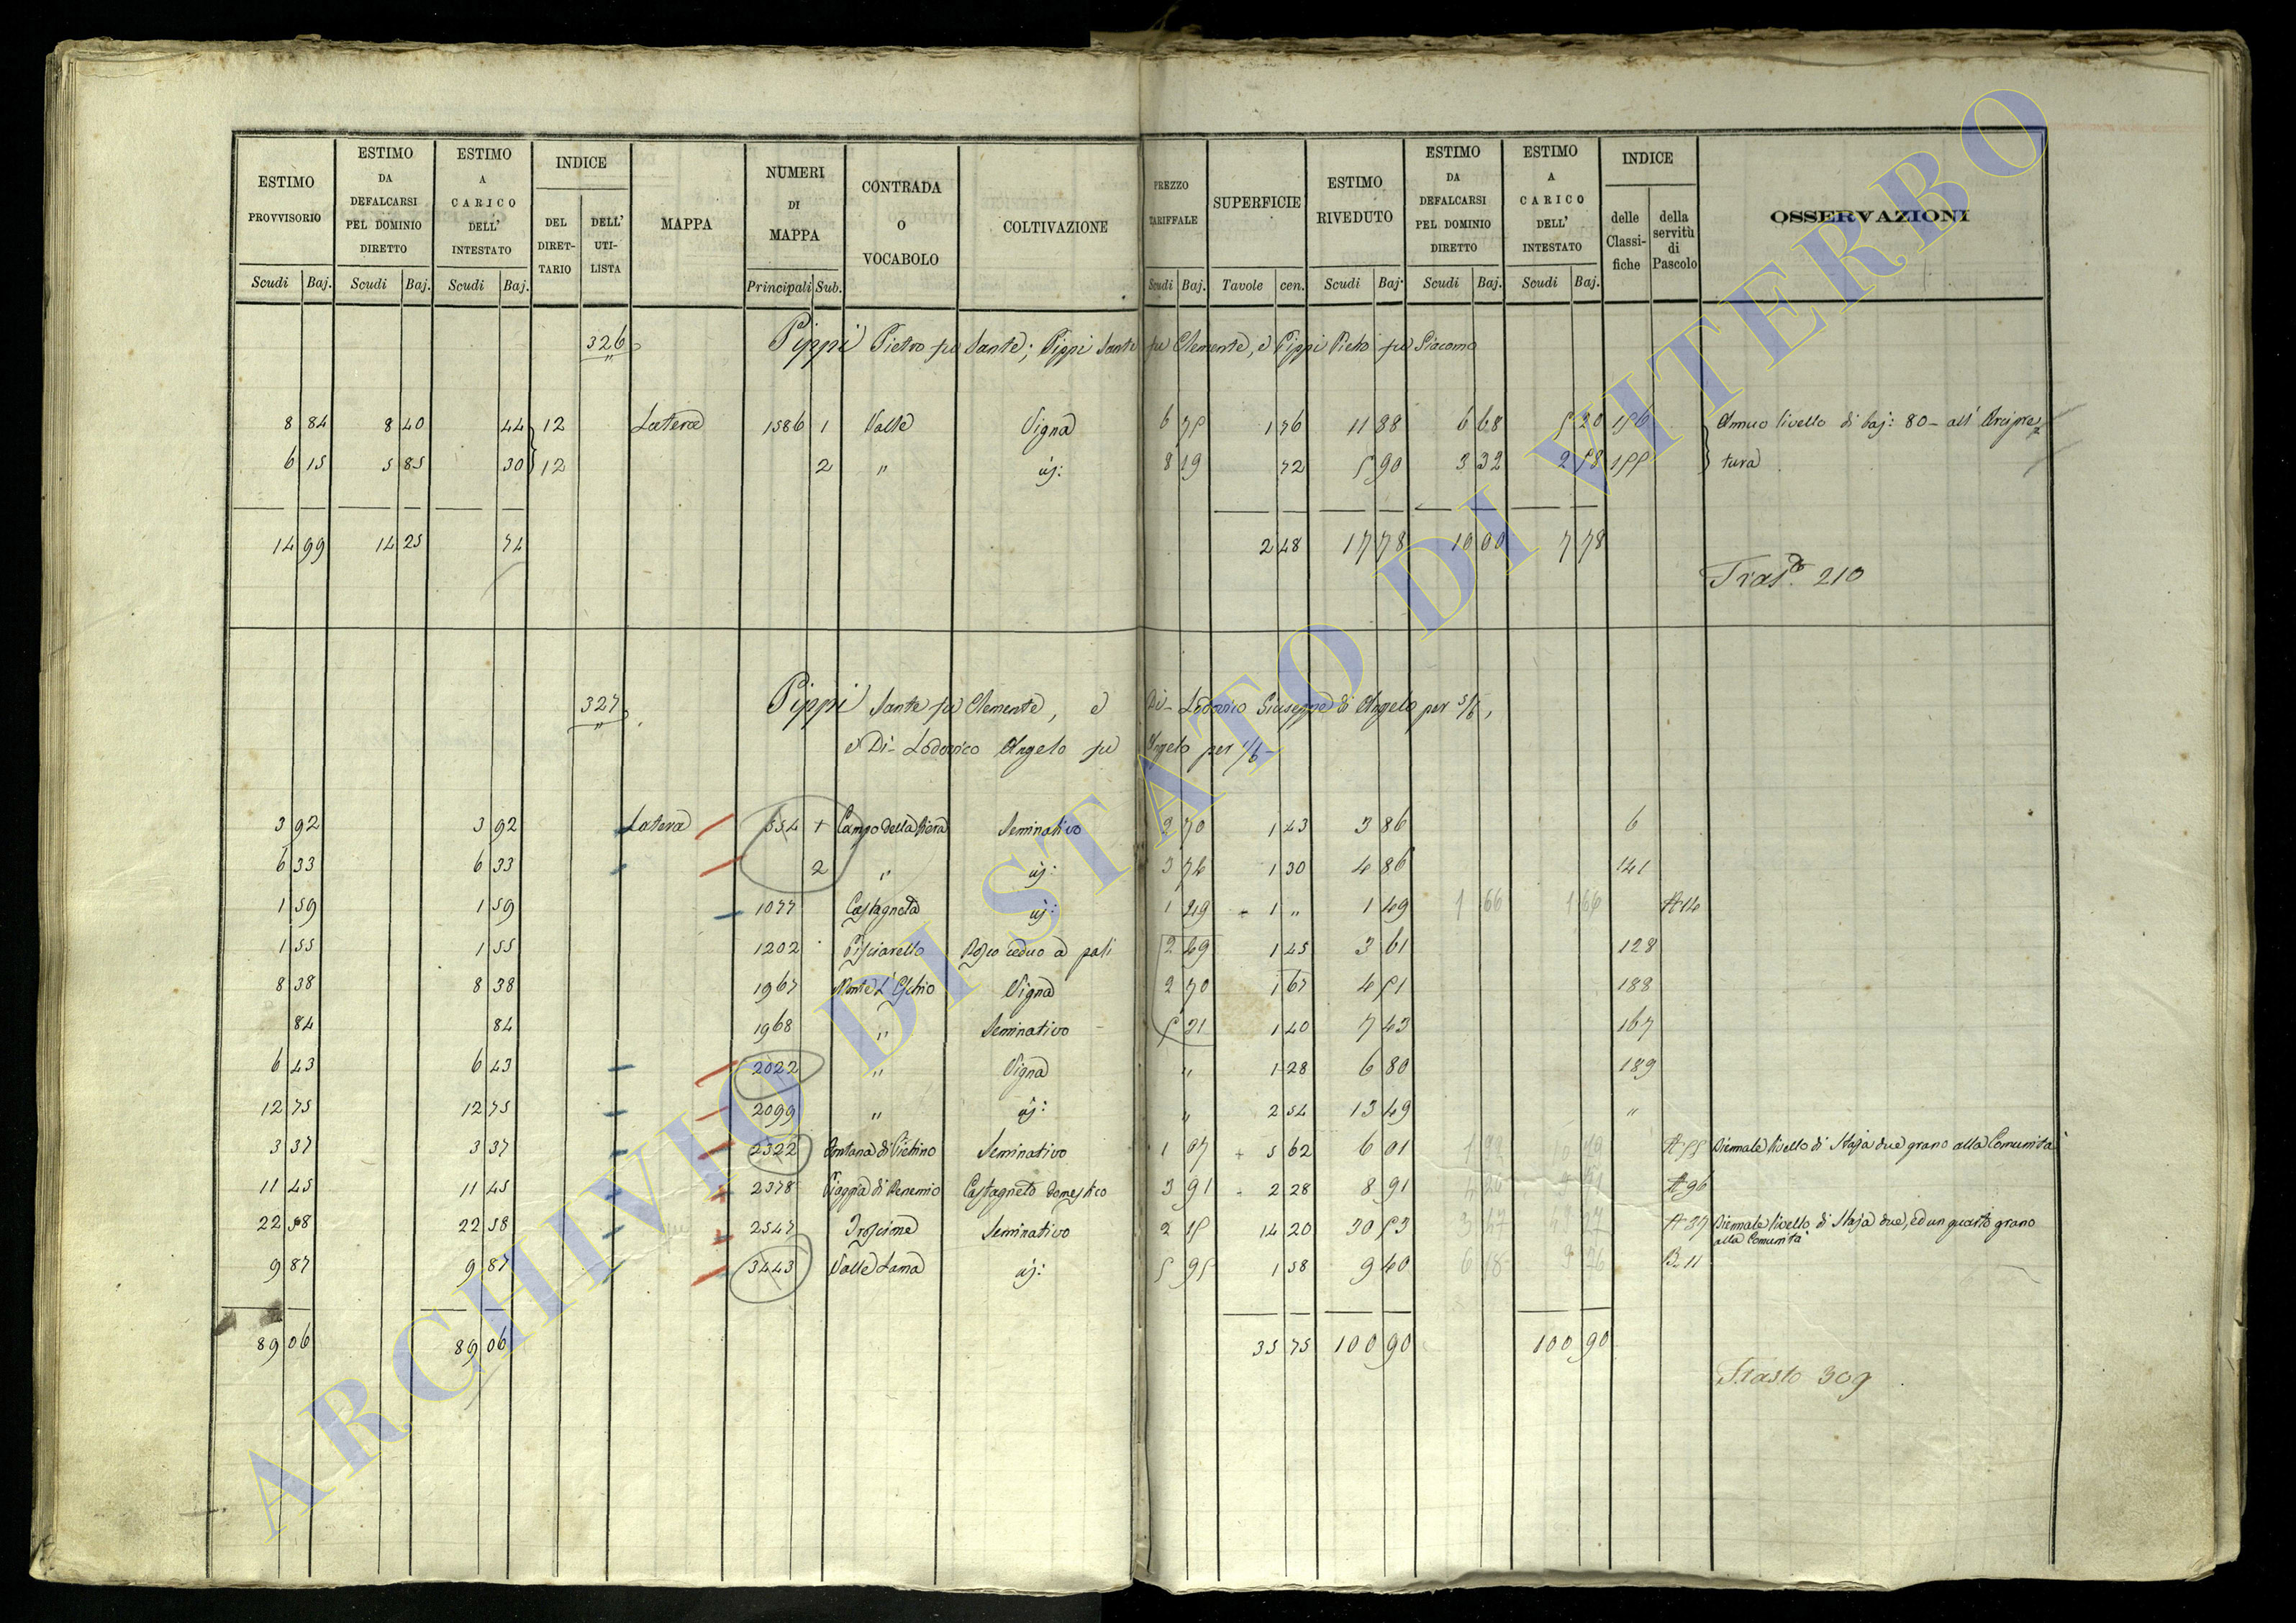 ESTIMO PROVVISORIO | ESTIMO DA DEFALCARSI PEL DOMINIO DIRETTO | ESTIMO A CARICO DELL' INTESTATO | INDICE | MAPPA | NUMERI DI MAPPA | CONTRADA O VOCABOLO | COLTIVAZIONE | PREZZO TARIFFALE | SUPERFICIE | ESTIMO RIVEDUTO | ESTIMO DA DEFALCARSI PEL DOMINIO DIRETTO | ESTIMO A CARICO DELL' INTESTATO | INDICE | OSSERVAZIONI
DEL DIRETTARIO | DELL' UTILISTA | delle Classifiche | della servitù di Pascolo
Scudi | Baj. | Scudi | Baj. | Scudi | Baj. | Principali | Sub. | Scudi | Baj. | Tavole | cen. | Scudi | Baj. | Scudi | Baj. | Scudi | Baj.
326 Pippi Pietro fu Sante; Pippi Sante fu Clemente, e Pippi Pietro fu Giacomo
8 84 | 8 40 | 44 | 12 | Latera | 1586 | 1 | Valle | Vigna | 6 75 | 1 76 | 11 88 | 6 68 | 5 20 | 156 | Annuo livello di baj: 80 - all' Arcipre
6 15 | 5 85 | 30 | 12 | 2 | " | id: | 8 19 | 72 | 5 90 | 3 32 | 2 58 | 155 | tura
14 99 | 14 25 | 74 | 2 48 | 17 78 | 10 00 | 7 78
Trasto 210
327 Pippi Sante fu Clemente, e Di-Lodovico Giuseppe di Angelo per 5/6,
e Di-Lodovico Angelo fu Angelo per 1/6-
3 92 | 3 92 | Latera | 554 | 1 | Campo della fiera | Seminativo | 2 70 | 1 43 | 3 86 | 6
6 33 | 6 33 | 2 | " | id: | 3 74 | 1 30 | 4 86 | 141
1 59 | 1 59 | 1077 | Castagneta | id: | 1 49 | 1 " | 1 49 | 1 66 | 1 66 | A 14
1 55 | 1 55 | 1202 | Pisciarello | Bosco ceduo a pali | 2 49 | 1 45 | 3 61 | 128
8 38 | 8 38 | 1967 | Monte L'Eschio | Vigna | 2 70 | 1 67 | 4 51 | 188
84 | 84 | 1968 | " | Seminativo | 5 31 | 1 40 | 7 43 | 167
6 43 | 6 43 | 2022 | " | Vigna | " | 1 28 | 6 80 | 189
12 75 | 12 75 | 2099 | " | id: | " | 2 54 | 13 49 | "
3 37 | 3 37 | 2322 | Fontana di | Seminativo | 1 07 | 5 62 | 6 01 | A 55 | Biennale livello di Staja due grano alla Comunità
11 45 | 11 45 | 2378 | Piaggia di | Castagneto domestico | 3 91 | 2 28 | 8 91 | A 96
22 58 | 22 58 | 2547 | Seminativo | 2 15 | 14 20 | 30 53 | A 37 | Biennale livello di Staja due, ed un quarto grano
alla Comunità
9 87 | 9 87 | 3443 | Valle Lama | id: | 5 95 | 1 58 | 9 40 | B. 11
89 06 | 89 06 | 35 75 | 100 90 | 100 90
Trasto 309
ARCHIVIO DI STATO DI VITERBO